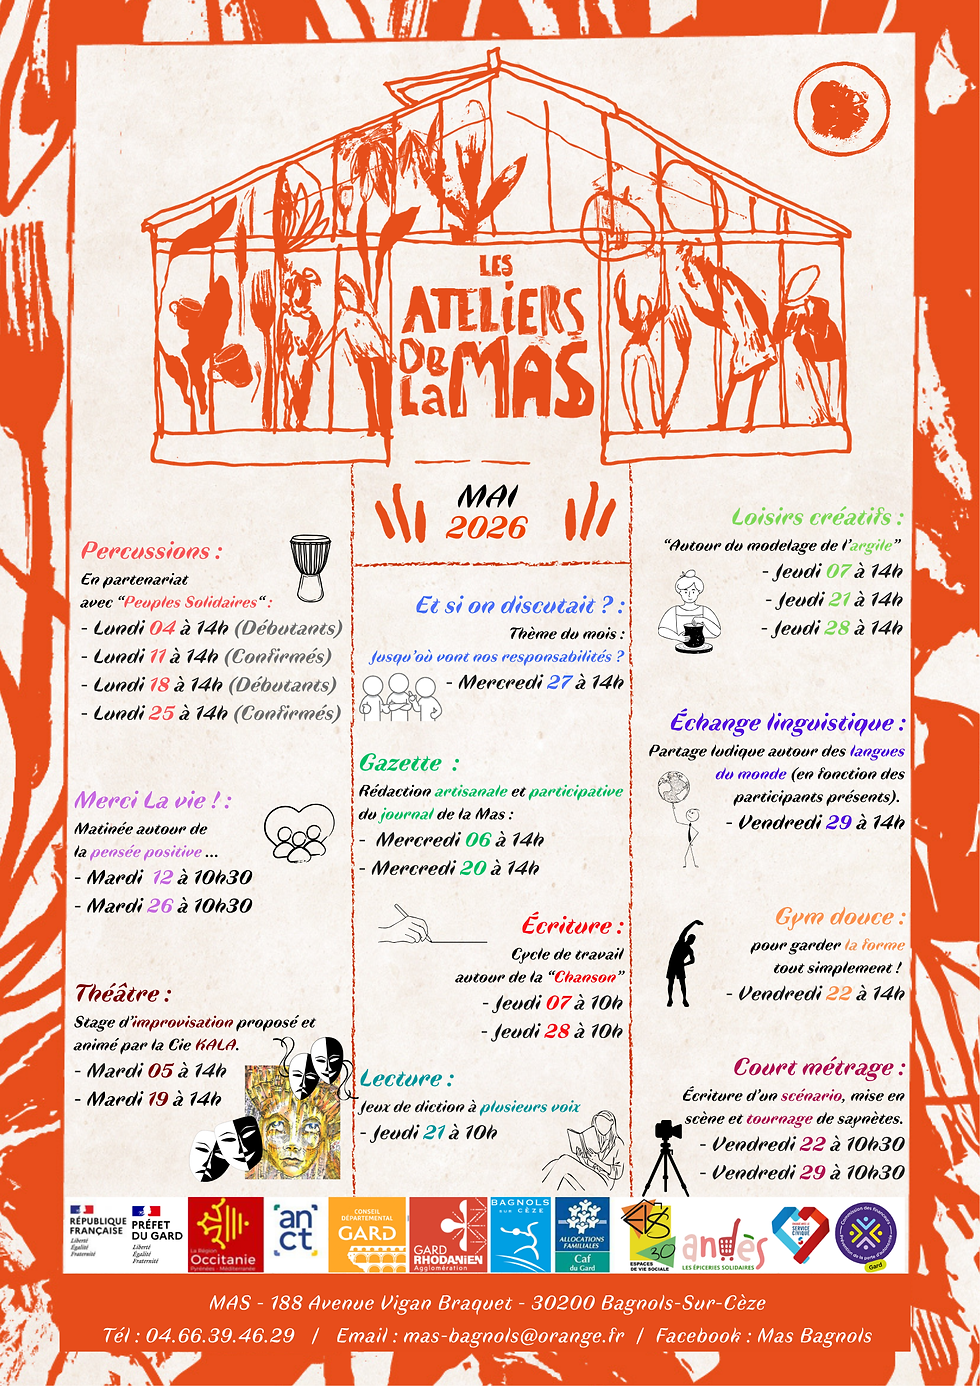 LES
ATELIERS
DE LA MAS
MAI
2026
Percussions :
En partenariat
avec “Peuples Solidaires“ :
- Lundi 04 à 14h (Débutants)
- Lundi 11 à 14h (Confirmés)
- Lundi 18 à 14h (Débutants)
- Lundi 25 à 14h (Confirmés)
Merci La vie ! :
Matinée autour de
la pensée positive ...
- Mardi 12 à 10h30
- Mardi 26 à 10h30
Théâtre :
Stage d'improvisation proposé et
animé par la Cie KALA.
- Mardi 05 à 14h
- Mardi 19 à 14h
Et si on discutait ? :
Thème du mois :
Jusqu'où vont nos responsabilités ?
- Mercredi 27 à 14h
Gazette :
Rédaction artisanale et participative
du journal de la Mas :
- Mercredi 06 à 14h
- Mercredi 20 à 14h
Écriture :
Cycle de travail
autour de la “Chanson”
- Jeudi 07 à 10h
- Jeudi 28 à 10h
Lecture :
Jeux de diction à plusieurs voix
- Jeudi 21 à 10h
Loisirs créatifs :
“Autour du modelage de l'argile”
- Jeudi 07 à 14h
- Jeudi 21 à 14h
- Jeudi 28 à 14h
Échange linguistique :
Partage ludique autour des langues
du monde (en fonction des
participants présents).
- Vendredi 29 à 14h
Gym douce :
pour garder la forme
tout simplement !
- Vendredi 22 à 14h
Court métrage :
Écriture d'un scénario, mise en
scène et tournage de saynètes.
- Vendredi 22 à 10h30
- Vendredi 29 à 10h30
RÉPUBLIQUE
FRANÇAISE
Liberté
Égalité
Fraternité
PRÉFET
DU GARD
Liberté
Égalité
Fraternité
La Région
Occitanie
Pyrénées - Méditerranée
an
ct
CONSEIL
DÉPARTEMENTAL
GARD
GARD
RHODANIEN
Agglomération
BAGNOLS
sur CÈZE
ALLOCATIONS
FAMILIALES
Caf
du Gard
30
ESPACES
DE VIE SOCIALE
andès
LES ÉPICERIES SOLIDAIRES
SERVICE
CIVIQUE
Gard
MAS - 188 Avenue Vigan Braquet - 30200 Bagnols-Sur-Cèze
Tél : 04.66.39.46.29 / Email : mas-bagnols@orange.fr / Facebook : Mas Bagnols